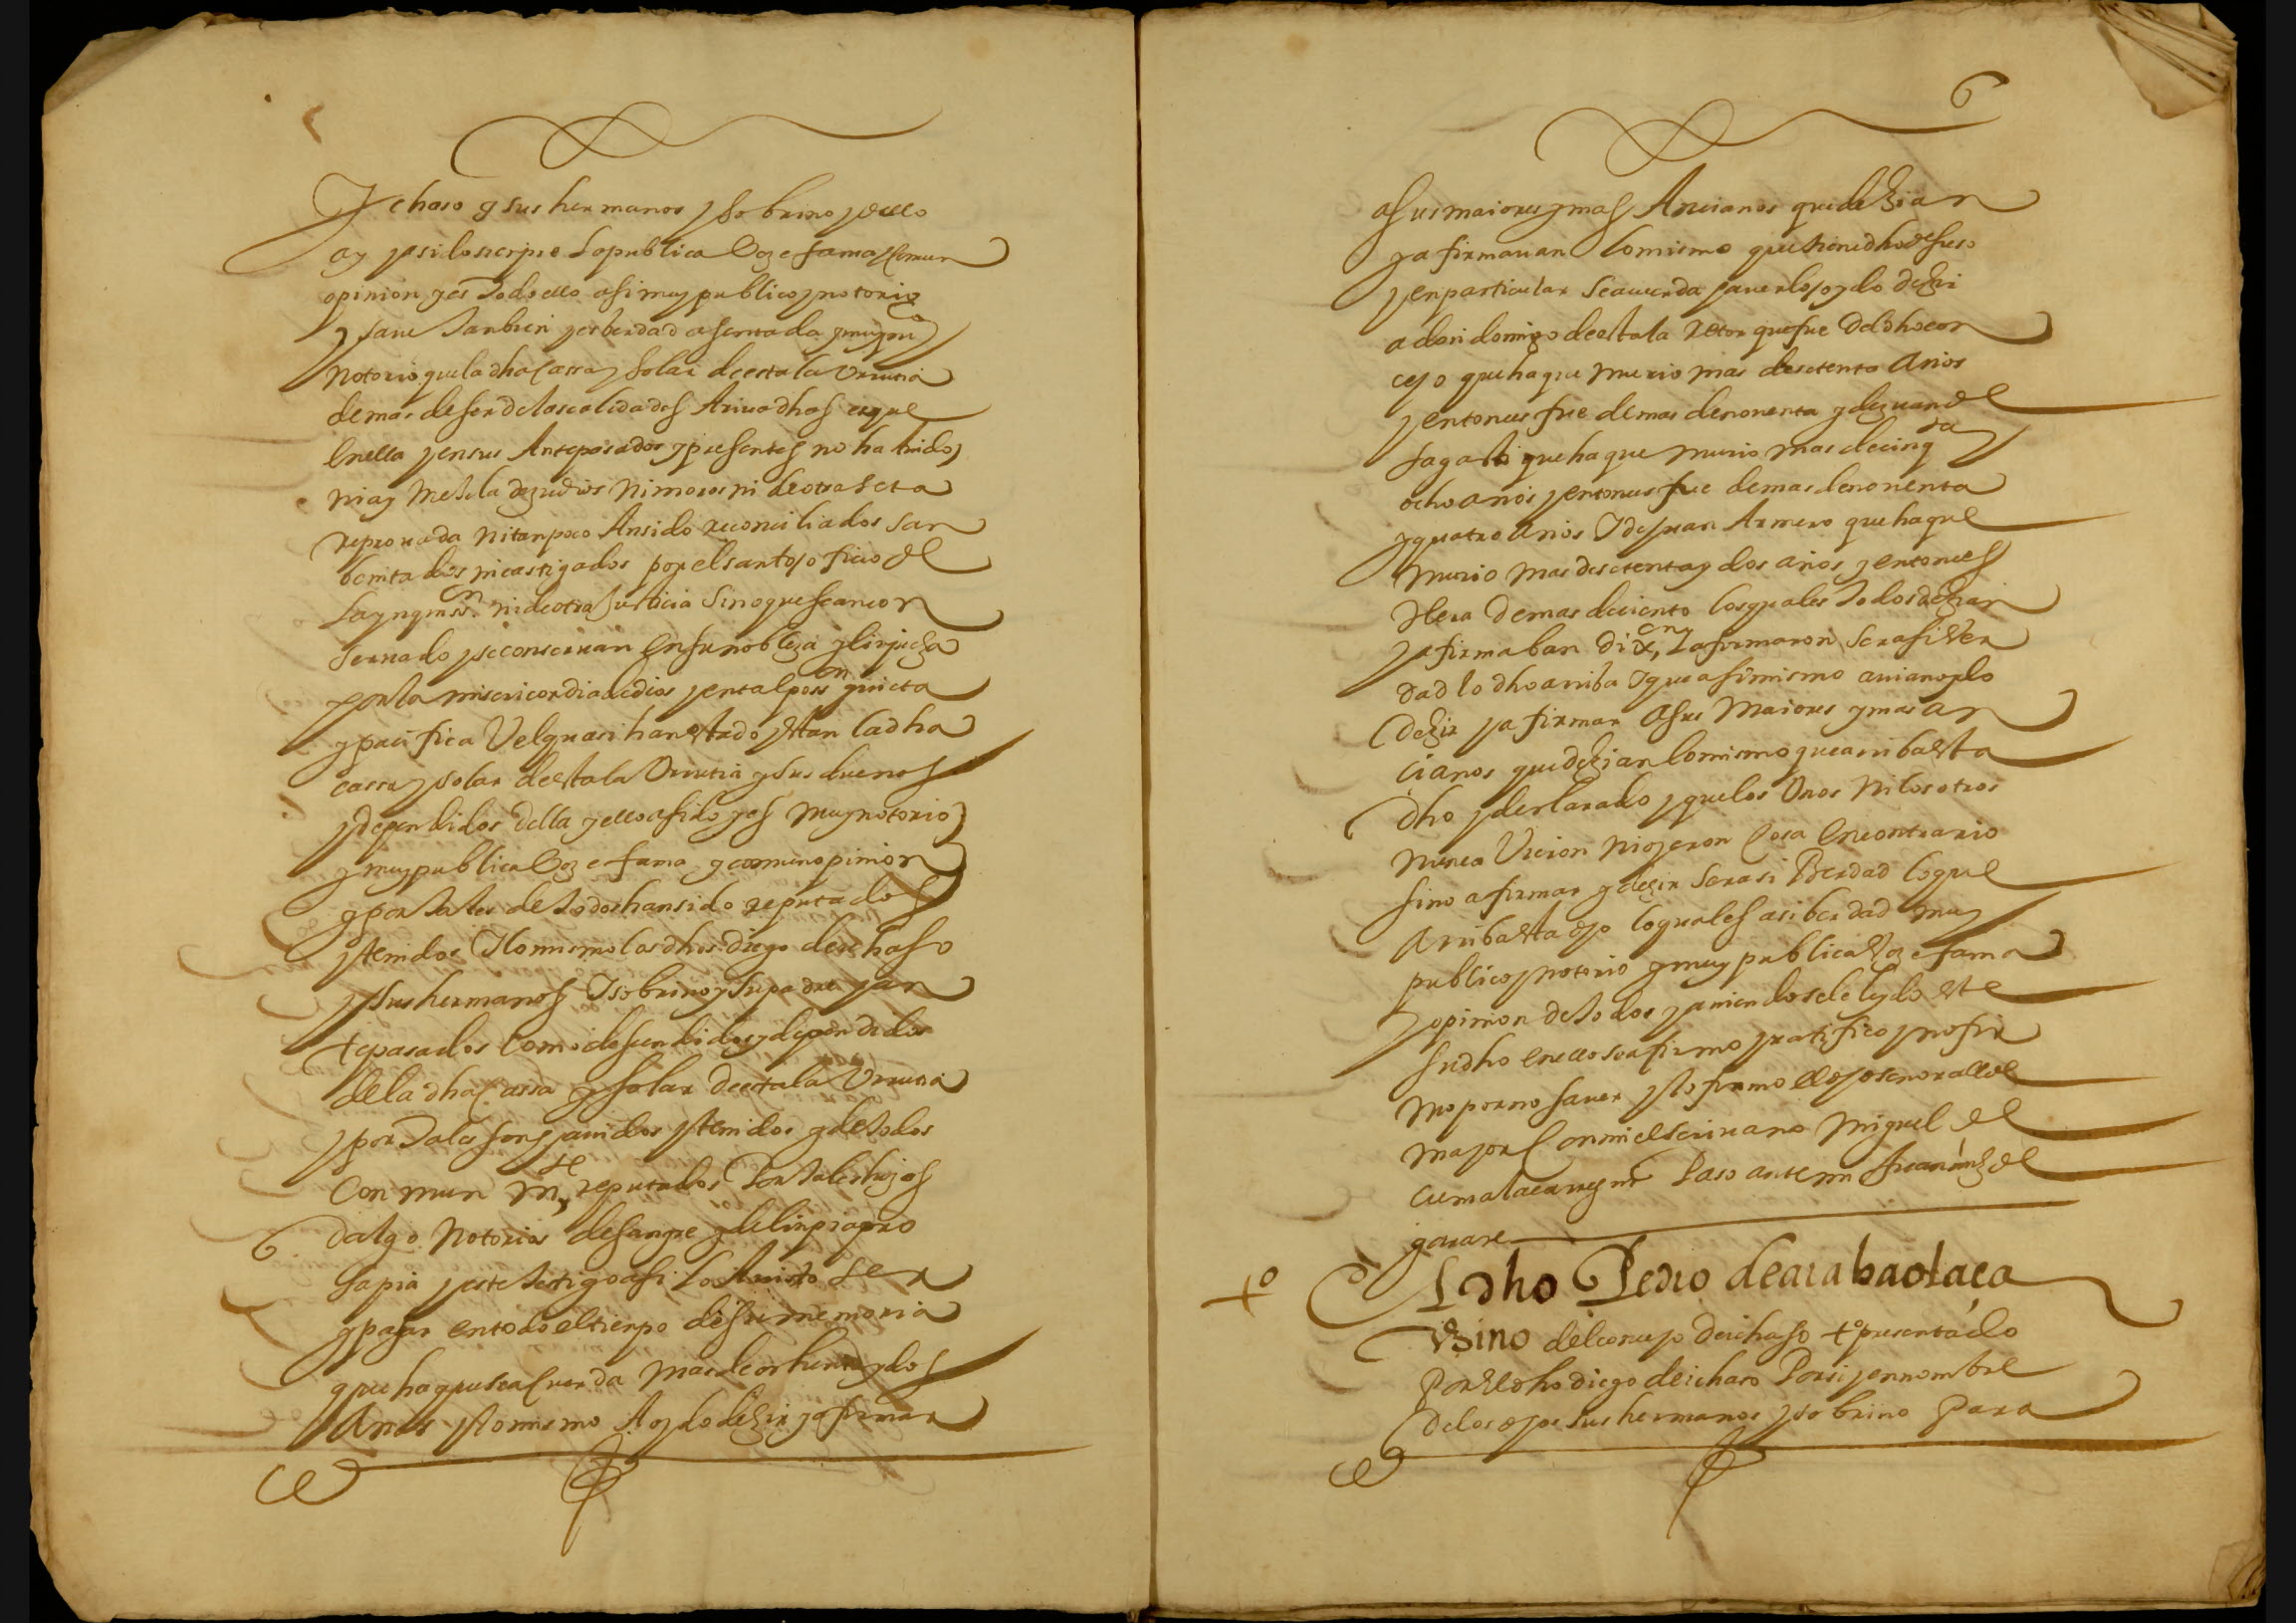 Ychaso y sus hermanos y sobrino y dello
ay y a sido sienpre la publica boz e fama y comun
opinion y es todo ello asi muy publico y notorio
y save tanbien y es berdad asentada y muy
notorio que la dha cassa y solar de estala Urrutia
demas de ser de las calidades Arriva dhas es que
En ella y en sus Antepasados y presentes no ha tenido
ni ay mescla de judios ni moros ni de otra secta
reprovada ni tanpoco An sido reconciliados san
benitados ni castigados por el santo oficio de
la ynqnsson ni de otra Justicia Sino que se an con
servado y se conservan En su nobleza y linpieza
por la misericordia de dios y en tal posson quieta
y pacifica Vel quasi han estado y estan la dha
cassa y solar de estala Urrutia y sus duenos
y dependidos della y ello a sido y es muy notorio
y muy publica boz e fama y comun opinion
y por tales de todos han sido reputados
y tenidos Y lo mismo los dhos diego de ichaso
y sus hermanos Y sobrino y su padre y an
tepasados como desendidos y dependidos
de la dha cassa y solar de estala Urrutia
y por tales son avidos y tenidos y de todos
Conmun mte reputados Por tales hijos
dalgo Notorios de sangre y de linpia pro
sapia y este testigo asi lo A visto ser
y pasar en todo el tienpo de su memoria
que ha que se aCuerda mas de ochenta y dos
Anos y lo mismo A oydo dezir y afirmar
6
a sus maiores y mas Ancianos que dezian
y afirmavan lo mismo que tiene dho de suso
y en particular se acuerda haverlo oydo dezir
a don domingo de estala retor que fue del dho con
cejo que ha que murio mas de setenta Anos
y entonces fue de mas de nonenta y de juan de
sagasti que ha que murio mas de cinqta
ocho anos y entonces fue de mas de nonenta
y quatro anos Y de juan Armero que ha que
murio mas de setenta y dos anos y entonces
Hera de mas de ciento los quales todos dezian
y afirmaban Y afirmaron ser asi Ver
dad lo dho arriba Y que asimismo avian oydo
dezir y afirmar A sus Maiores y mas an
cianos que dezian lo mismo que arriba esta
dho y declarado y que los Unos ni los otros
nunca Vieron ni oyeron Cosa En contrario
sino afirmar y dezir ser asi Berdad lo que
Arriba esta dho lo qual es asi berdad muy
publico y notorio y muy publica boz e fama
y opinion de todos y aviendosele leydo este
su dho en ello se afirmo y ratifico y no fir
mo por no saver y lo firmo el dho senor allde
mayor Con mi el scrivano Miguel de
Paso ante mi Juan de
garare
to
El dho Pedro de arabaolaça
Vzino del concejo de ichaso to presentado
Por el dho diego de ichaso Por si y en nombre
de los dhos sus hermanos y sobrino Para